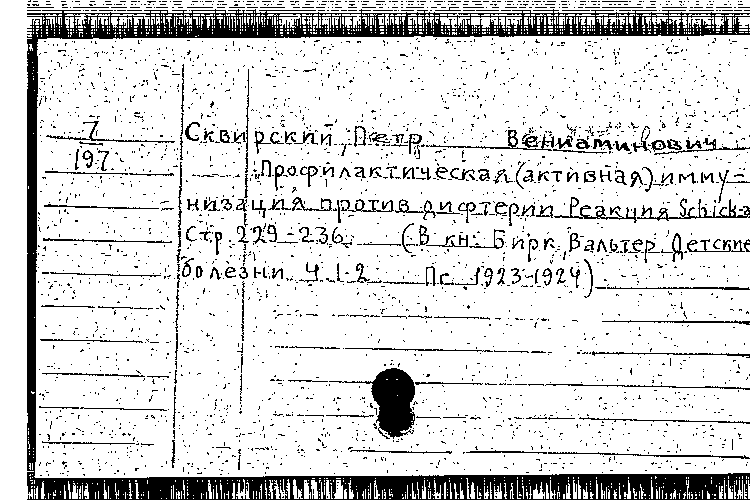 7
197
Сквирский, Петр Вениаминович
Профилактическая (активная) имму-
низация против дифтерии Реакция Schick-а
Стр 229-236. (В кн: Бирк, Вальтер Детские
болезни Ч 1-2 Пг. 1923-1924)